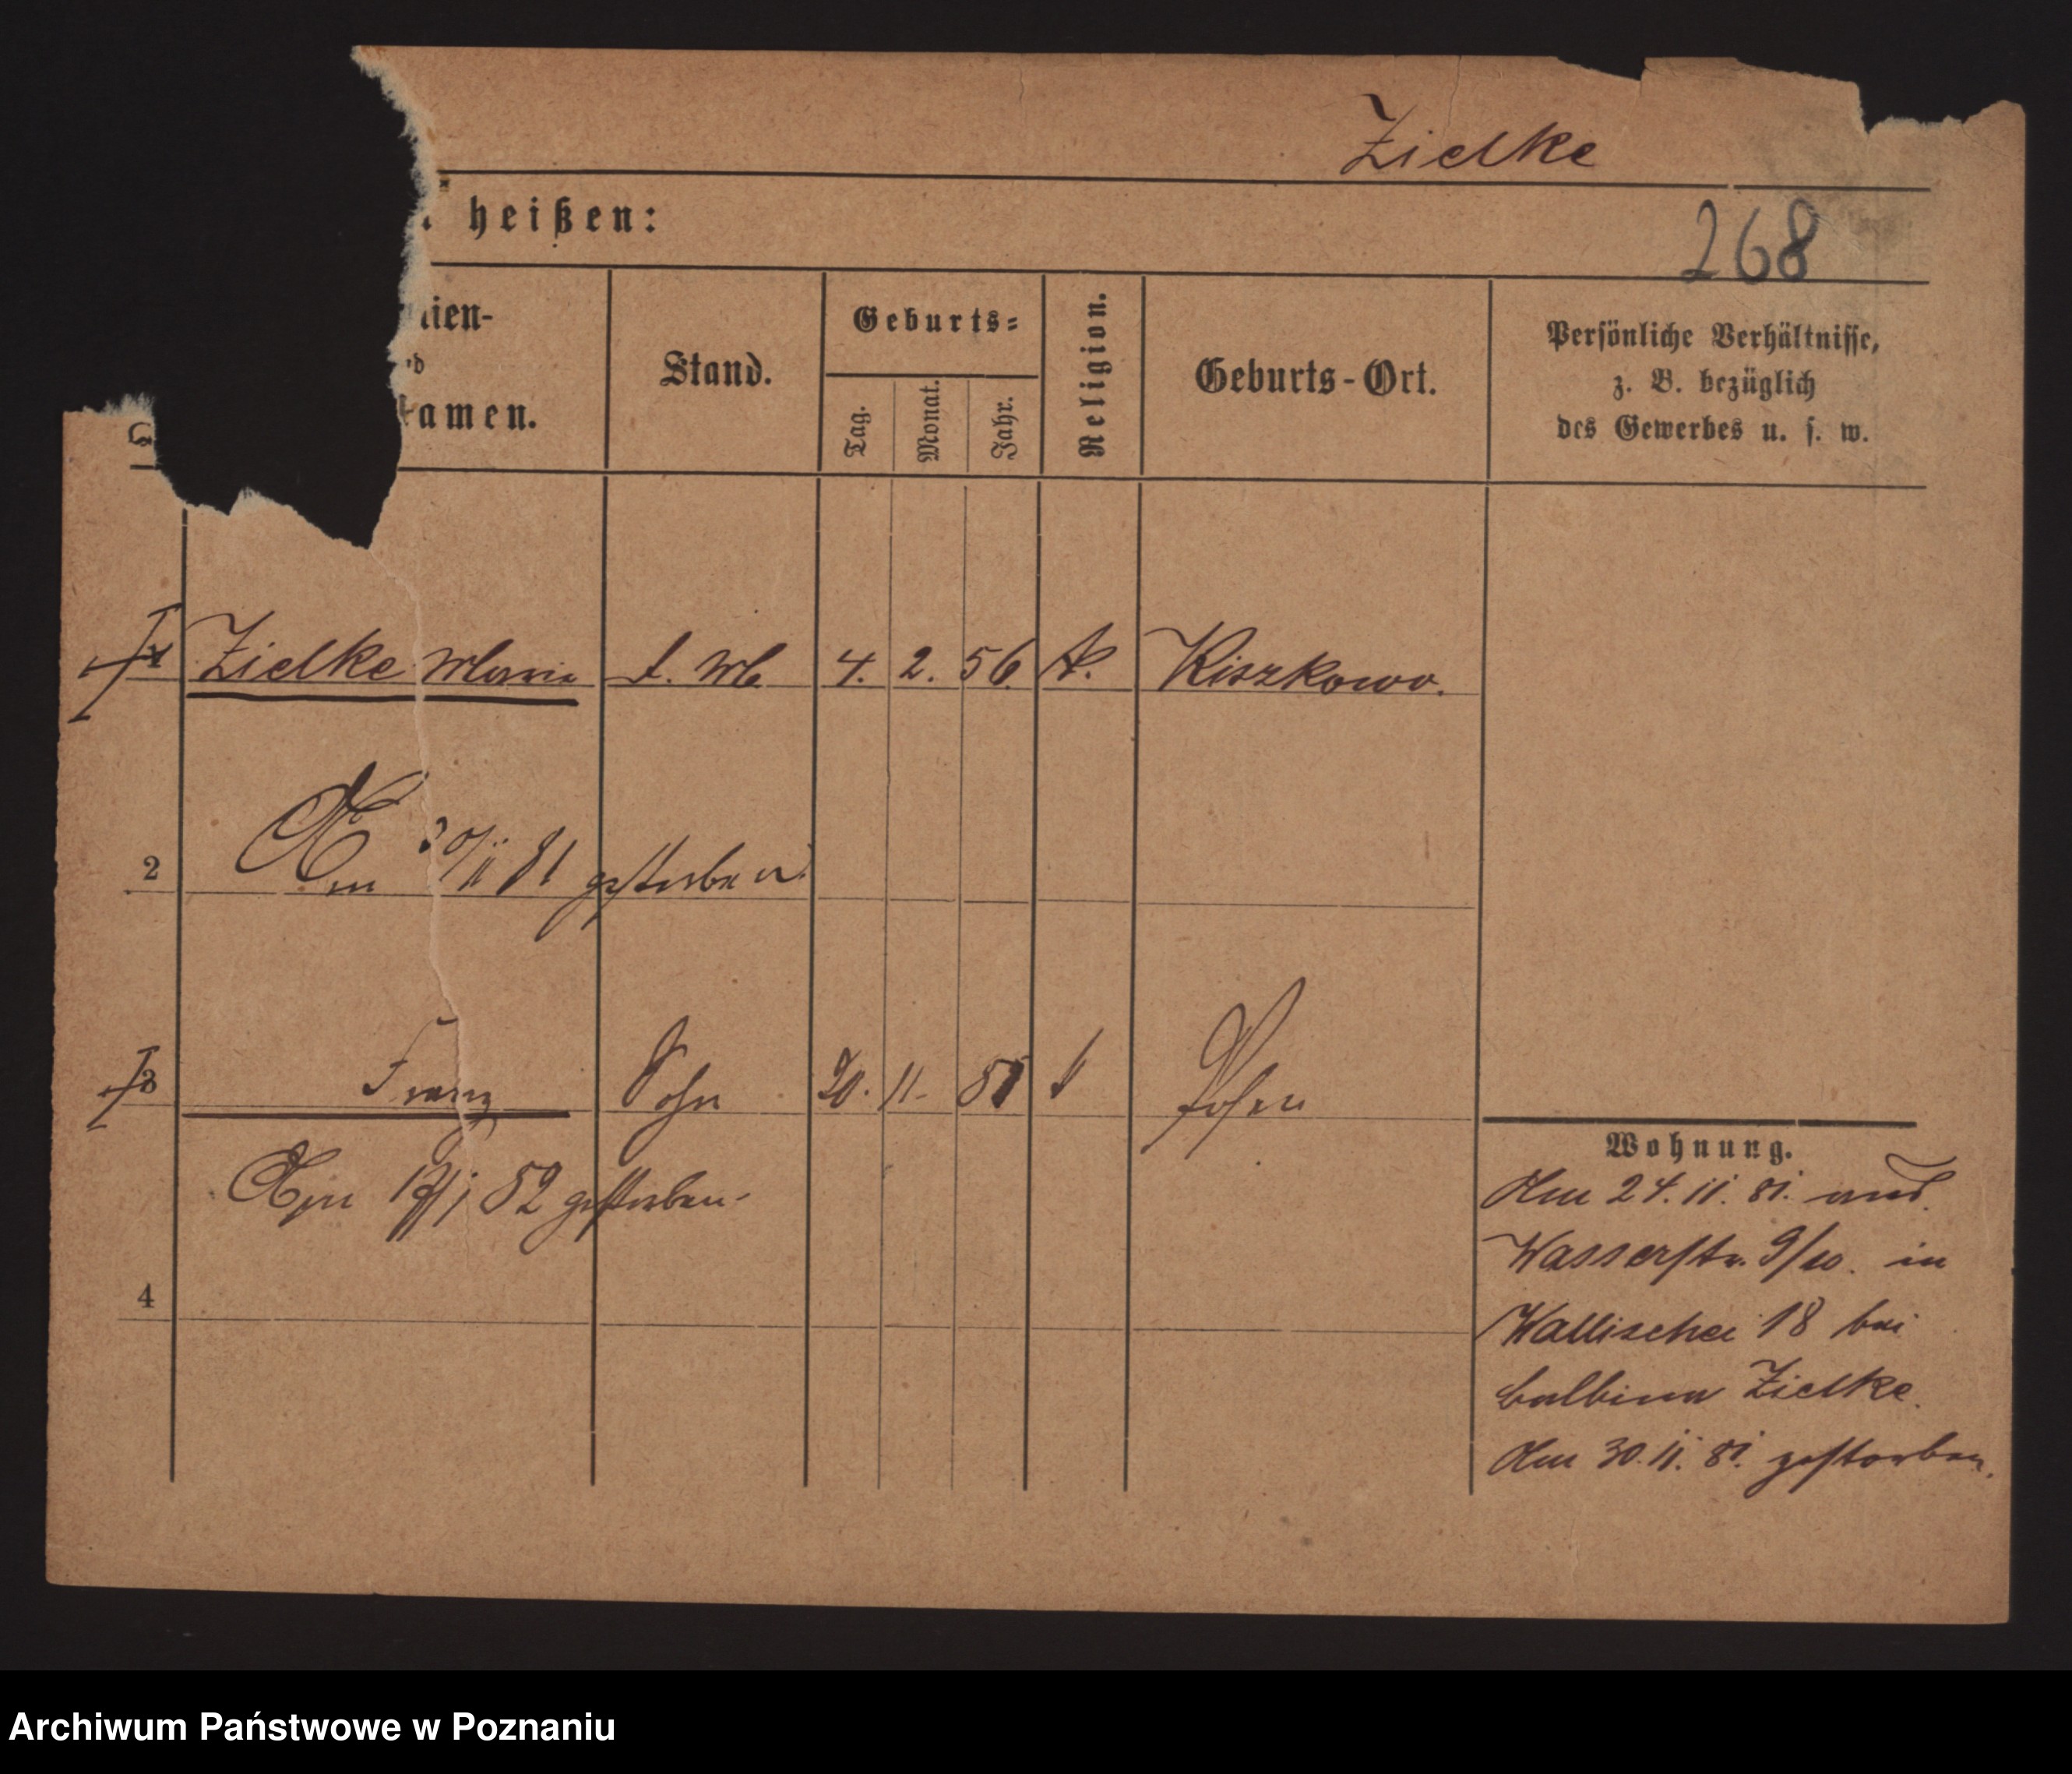 Zielke
heißen:
268
Geburts=
Stand.
Tag.
Monat.
Jahr.
Religion.
Geburts-Ort.
Persönliche Verhältnisse,
z. B. bezüglich
des Gewerbes u. s. w.
amen.
Zielke Maria
4. 2. 56
Kiszkowo.
2
Am 30/11 81 gestorben.
3
Franz Sohn 20. 11. 81 Posen
Am 17/1 82 gestorben.
4
Wohnung.
Am 24.11.81. aus
Wasserstr. 9/10. in
Wallischei 18 bei
Balbina Zielke.
Am 30.11.81. gestorben.
Archiwum Państwowe w Poznaniu